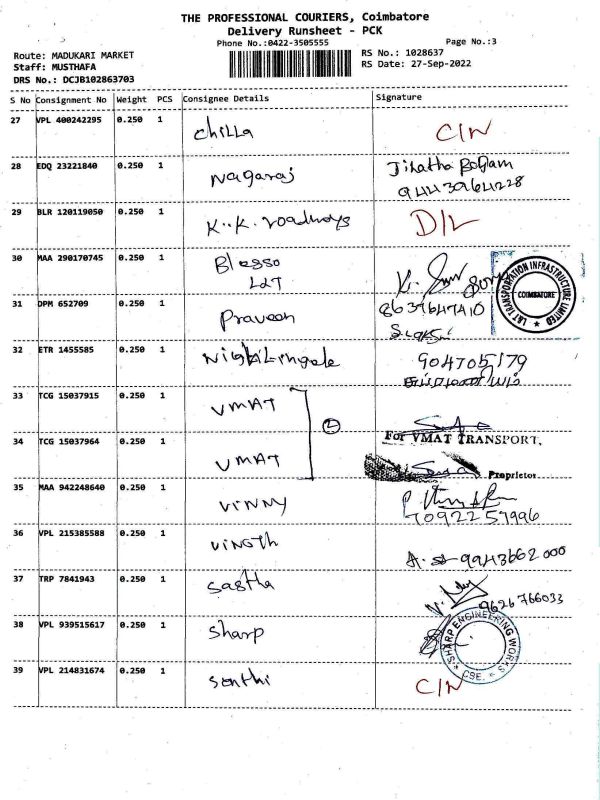 THE PROFESSIONAL COURIERS, Coimbatore
Delivery Runsheet - PCK
Phone No.:0422-3505555
Page No.:3
Route: MADUKARI MARKET
RS No.: 1028637
Staff: MUSTHAFA
RS Date: 27-Sep-2022
DRS No.: DCJB102863703
S No Consignment No Weight PCS Consignee Details Signature
27 VPL 400242295 0.250 1 chilla C/N
28 EDQ 23221840 0.250 1 Nagaraj
29 BLR 120119050 0.250 1 K.K. roadways D/L
30 MAA 290170745 0.250 1 Blesso
L&T
L&T TRANSPORTATION INFRASTRUCTURE LIMITED
COIMBATORE
31 DPM 652709 0.250 1 Praveen 8637647410
32 ETR 1455585 0.250 1 9047051179
33 TCG 15037915 0.250 1 VMAT
2
For VMAT TRANSPORT,
34 TCG 15037964 0.250 1 VMAT
Proprietor
35 MAA 942248640 0.250 1 VINNY
7092257996
36 VPL 215385588 0.250 1 vinoth
9943662000
37 TRP 7841943 0.250 1 Sastha
9626766033
38 VPL 939515617 0.250 1 Sharp
SHARP ENGINEERING WORKS
CBE.
39 VPL 214831674 0.250 1 Senthi C/N